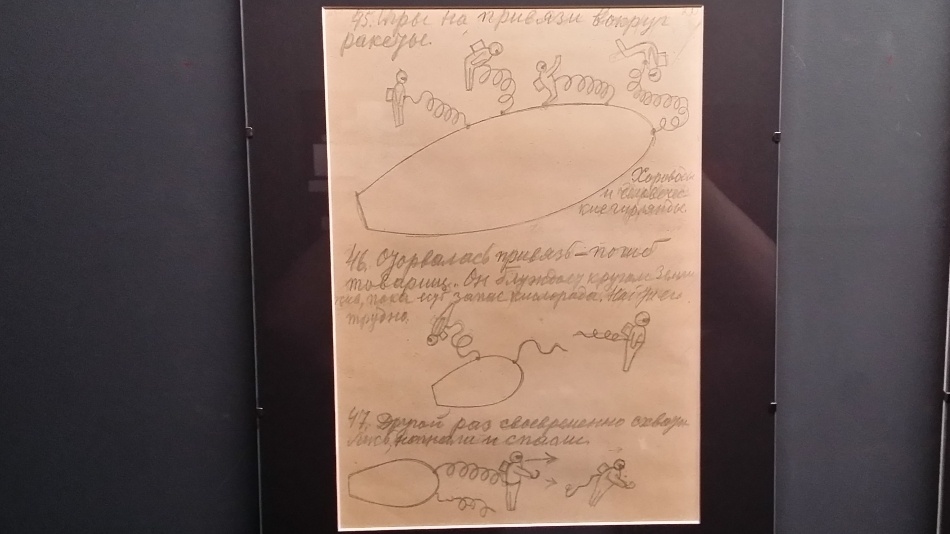 45. Игры на привязи вокруг
ракеты.
Хороводы
и человечес-
кие гирлянды
46. Оторвалась привязь – погиб
товарищ. Он блуждает кругом Земли
жив, пока есть запас кислорода. Найти его
трудно.
47. Другой раз своевременно схвати-
лись, нагнали и спасли.